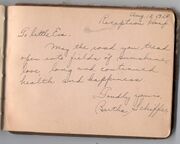 Aug. 12, 1928
Reception Hosp
To Little Eva
May the road you tread
open into fields of sunshine,
love, long and continued
health and happiness.
Fondly yours,
Bertha Scheffer